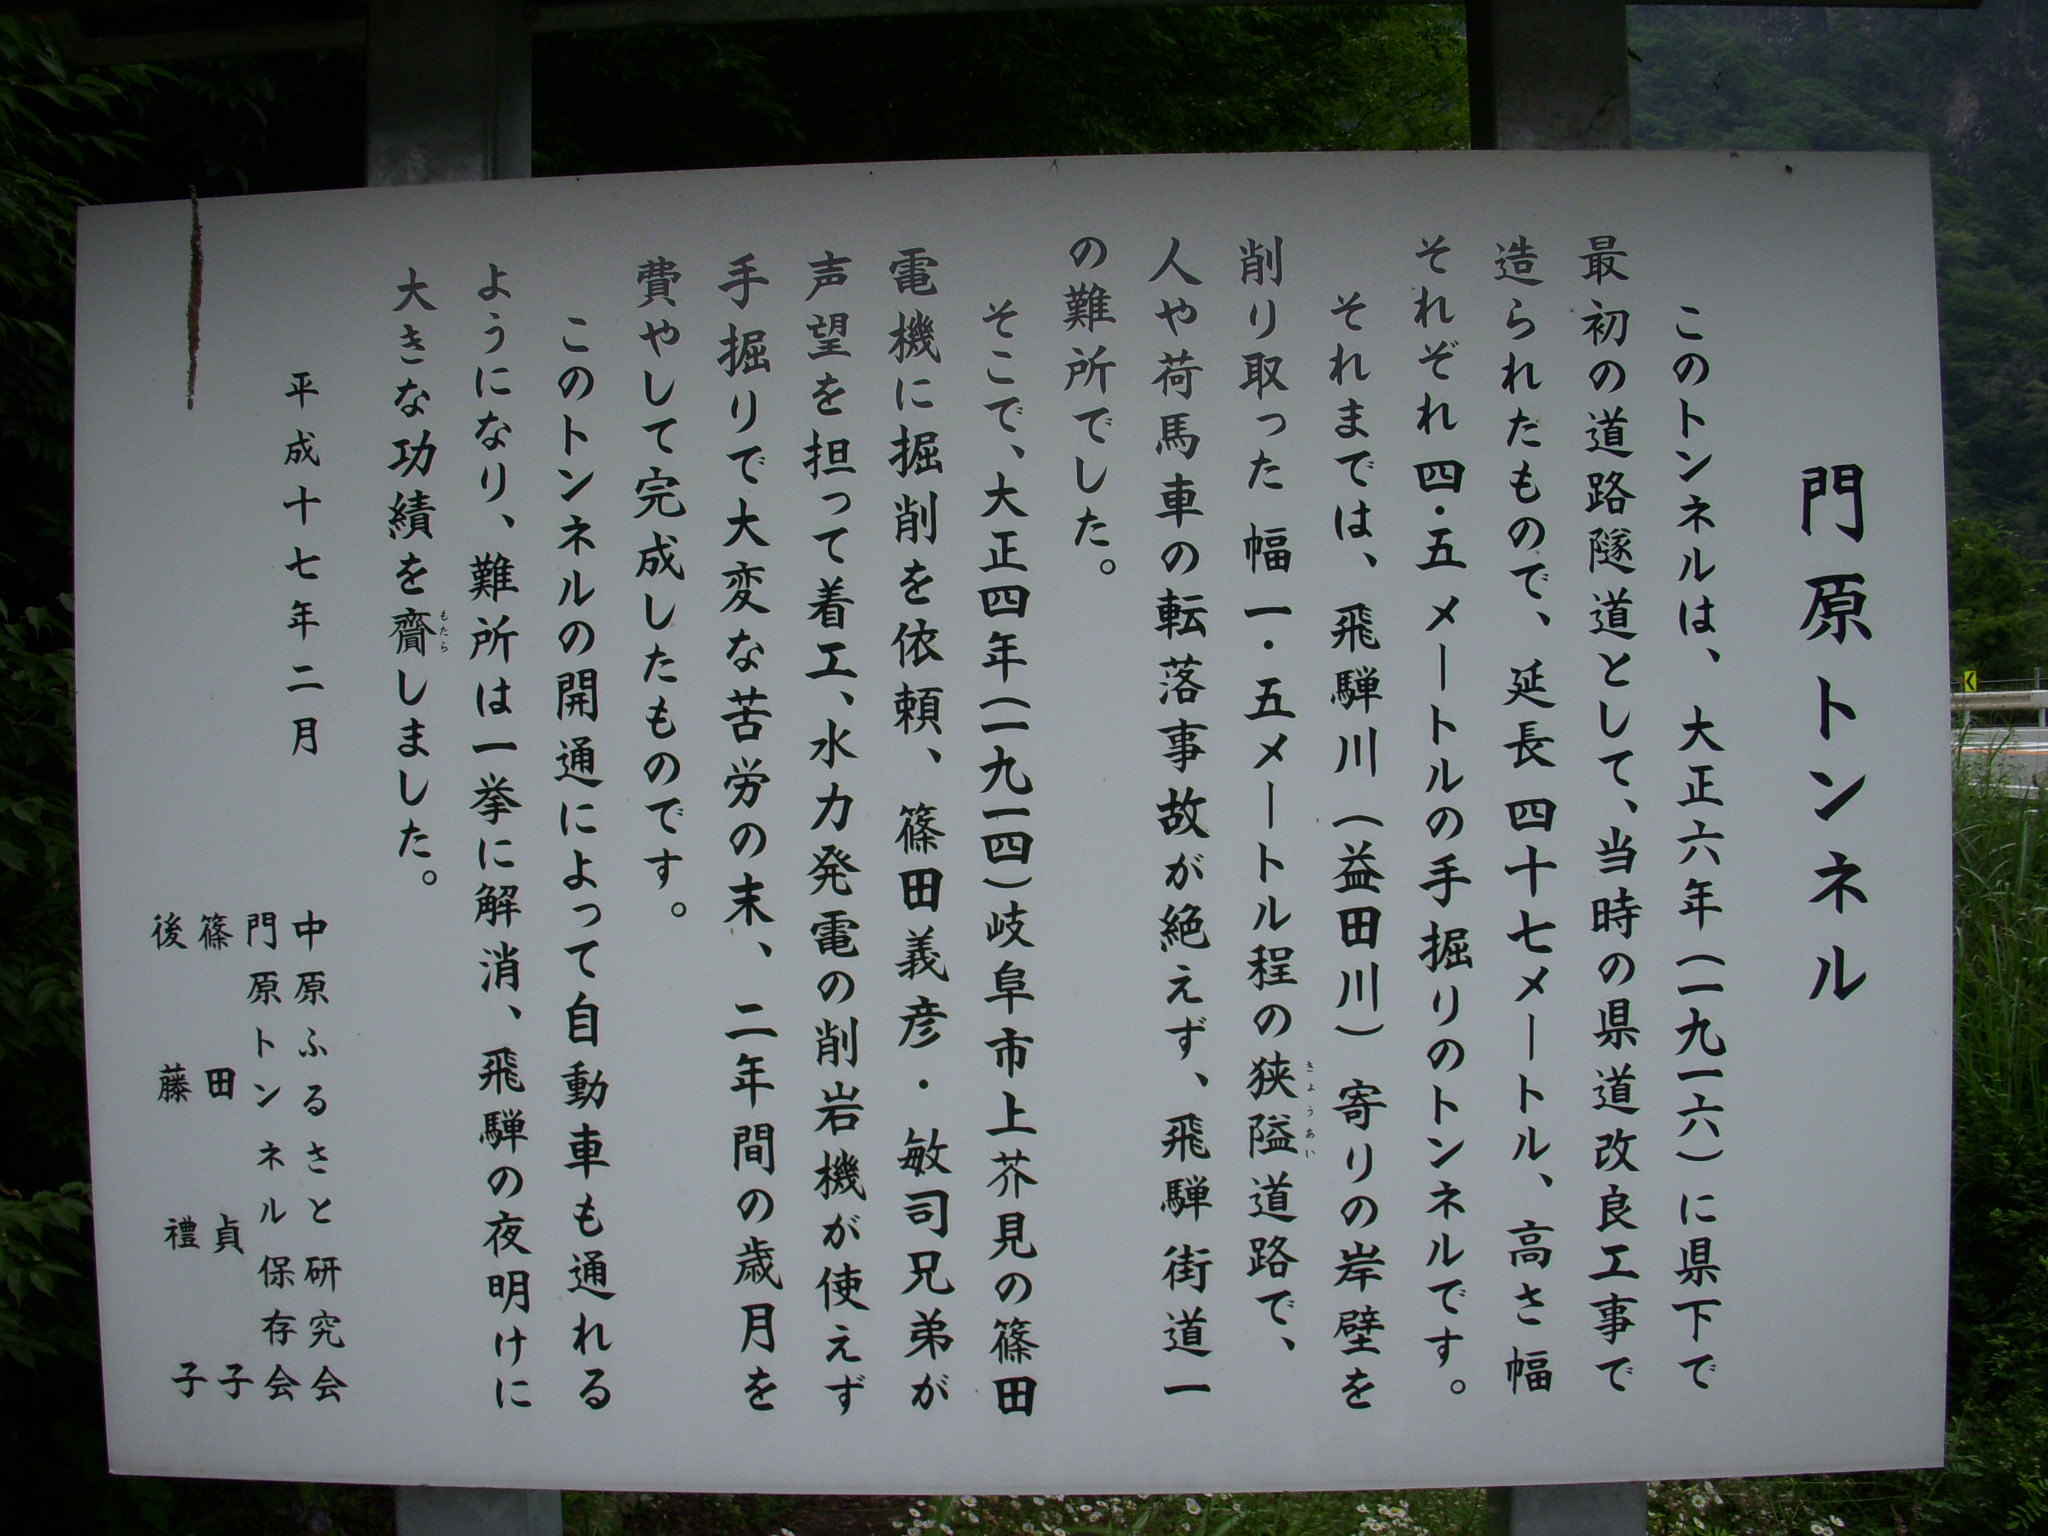 門原トンネル
このトンネルは、大正六年(一九一六)に県下で
最初の道路隧道として、当時の県道改良工事で
造られたもので、延長四十七メートル、高さ幅
それぞれ四・五メートルの手掘りのトンネルです。
それまでは、飛騨川(益田川)寄りの岸壁を
削り取った幅一・五メートル程の狭隘道路で、
きょうあい
人や荷馬車の転落事故が絶えず、飛騨街道一
の難所でした。
そこで、大正四年(一九一四)岐阜市上芥見の篠田
電機に掘削を依頼、篠田義彦・敏司兄弟が
声望を担って着工、水力発電の削岩機が使えず
手掘りで大変な苦労の末、二年間の歳月を
費やして完成したものです。
このトンネルの開通によって自動車も通れる
ようになり、難所は一挙に解消、飛騨の夜明けに
大きな功績を齎しました。
もたら
平成十七年二月
中原ふるさと研究会
門原トンネル保存会
篠田貞子
後藤禮子